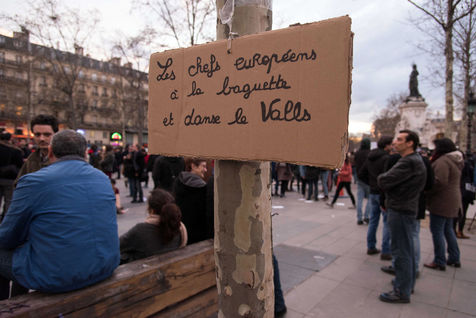 Les chefs européens
à la baguette
et danse le Valls